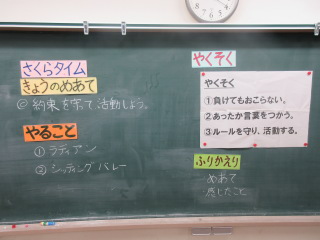 さくらタイム
きょうのめあて
◎ 約束を守って活動しよう。
やること
① ラディアン
② シッティングバレー
やくそく
やくそく
①負けてもおこらない。
②あったか言葉をつかう。
③ルールを守り、活動する。
ふりかえり
めあて
感じたこと